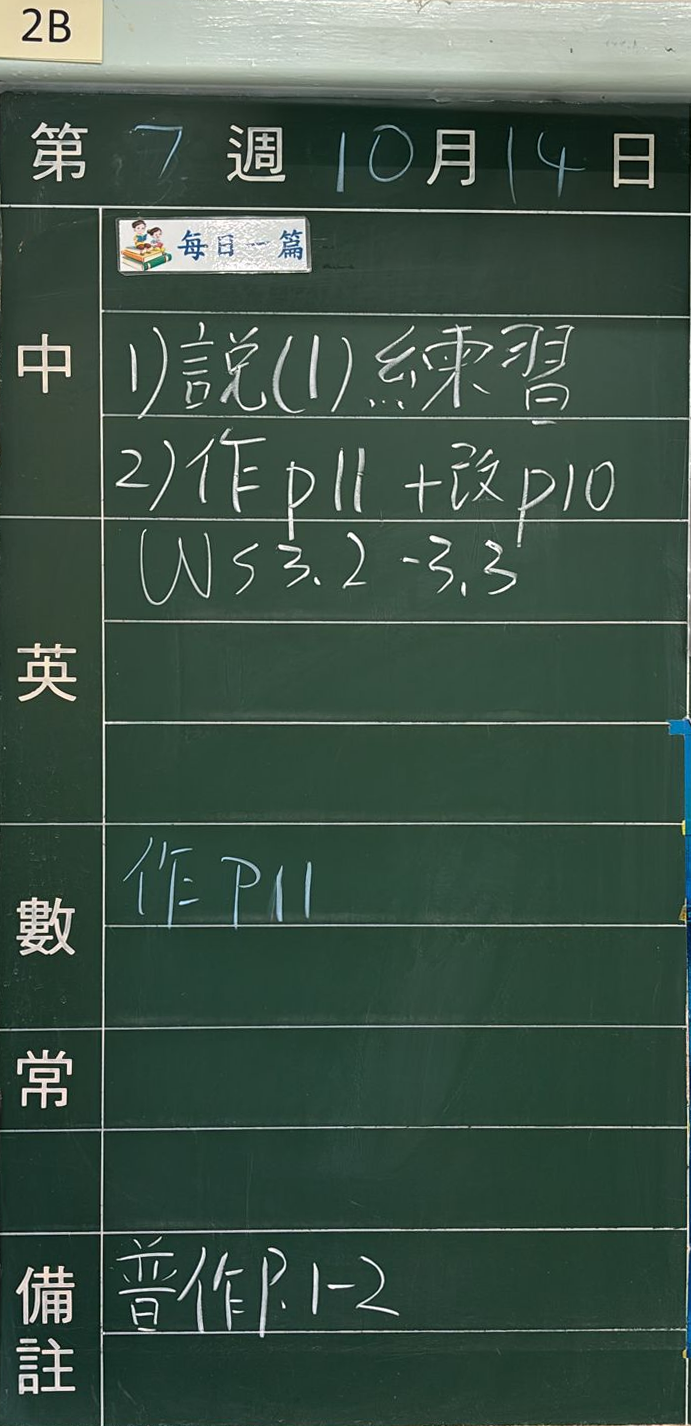 2B
第 7 週 10月14日
中
每日一篇
1)説(1)練習
2)作p11 +改p10
英
WS3.2-3.3
數
作P11
常
備註
普作P.1-2